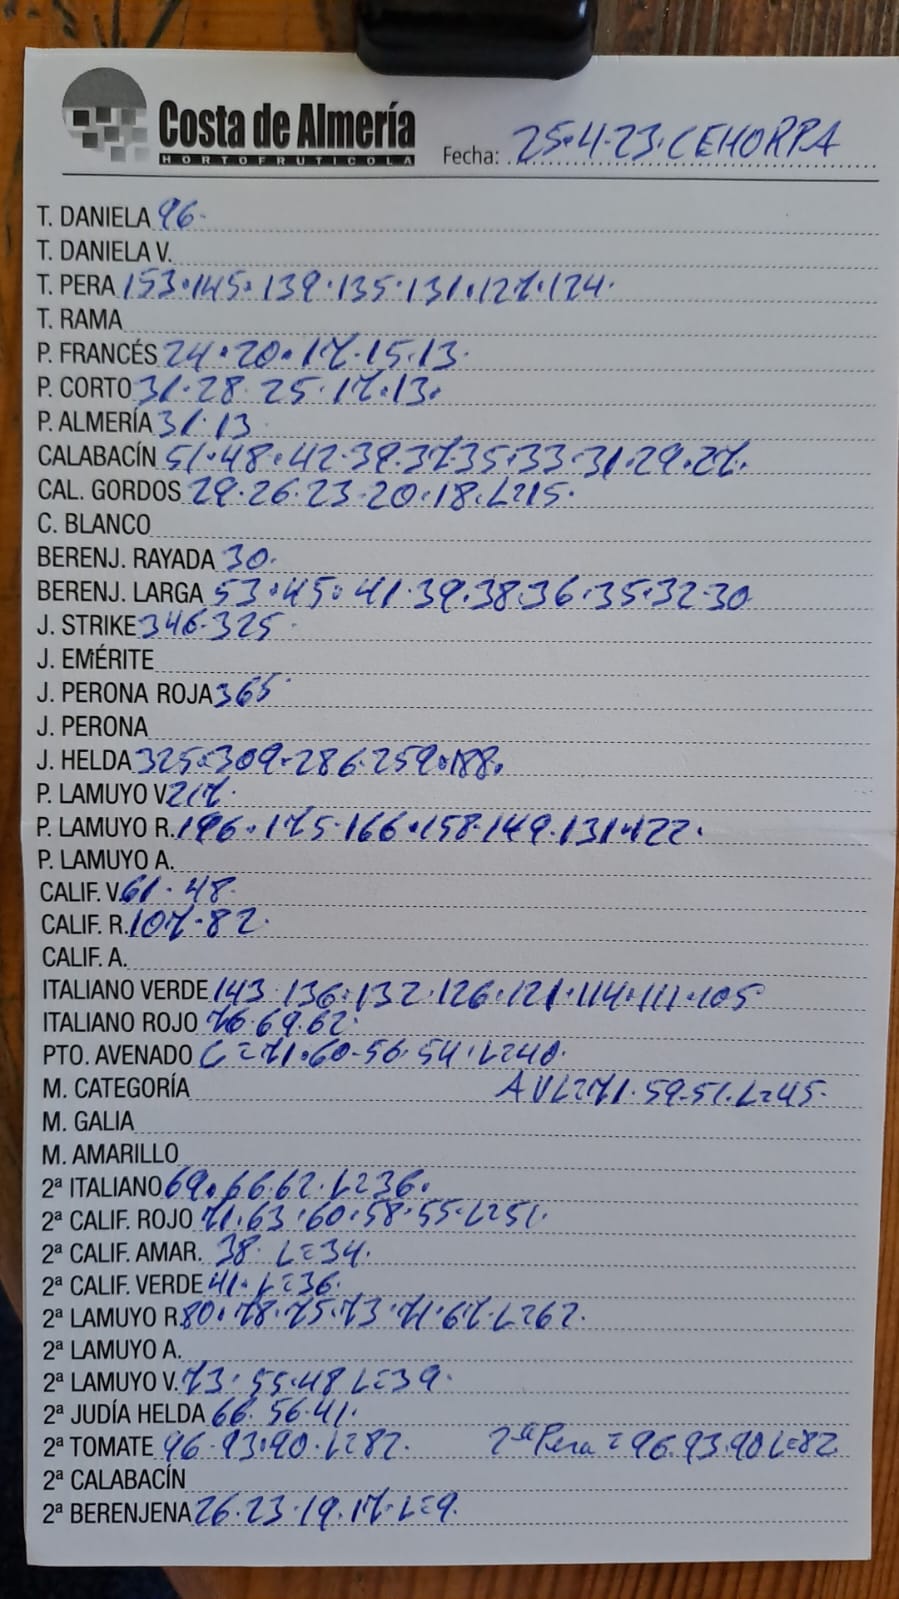 Costa de Almería
HORTOFRUTICOLA
Fecha: 25·4·23·CEHORPA
T. DANIELA 96·
T. DANIELA V.
T. PERA 153·145·139·135·131·127·124·
T. RAMA
P. FRANCÉS 24·20·17·15·13·
P. CORTO 31·28·25·17·13·
P. ALMERÍA 31·13·
CALABACÍN 51·48·42·39·37·35·33·31·29·27·
CAL. GORDOS 29·26·23·20·18·L=15·
C. BLANCO
BERENJ. RAYADA 30·
BERENJ. LARGA 53·45·41·39·38·36·35·32·30
J. STRIKE 346·325·
J. EMÉRITE
J. PERONA ROJA 365·
J. PERONA
J. HELDA 325·309·286·259·188·
P. LAMUYO V. 217·
P. LAMUYO R. 196·175·166·158·149·131·122·
P. LAMUYO A.
CALIF. V. 61·48·
CALIF. R. 107·82·
CALIF. A.
ITALIANO VERDE 143·136·132·126·121·114·111·105·
ITALIANO ROJO 76·69·62·
PTO. AVENADO C=71·60·56·54·L=40·
M. CATEGORÍA AVL=71·59·51·L=45·
M. GALIA
M. AMARILLO
2ª ITALIANO 69·66·62·L=36·
2ª CALIF. ROJO 71·63·60·58·55·L=51·
2ª CALIF. AMAR. 38·L=34·
2ª CALIF. VERDE 41·L=36·
2ª LAMUYO R. 80·78·75·73·71·67·L=62·
2ª LAMUYO A.
2ª LAMUYO V. 73·55·48·L=39·
2ª JUDÍA HELDA 66·56·41·
2ª TOMATE 96·93·90·L=82· 2ª Pera=96·93·90·L=82
2ª CALABACÍN
2ª BERENJENA 26·23·19·17·L=9·